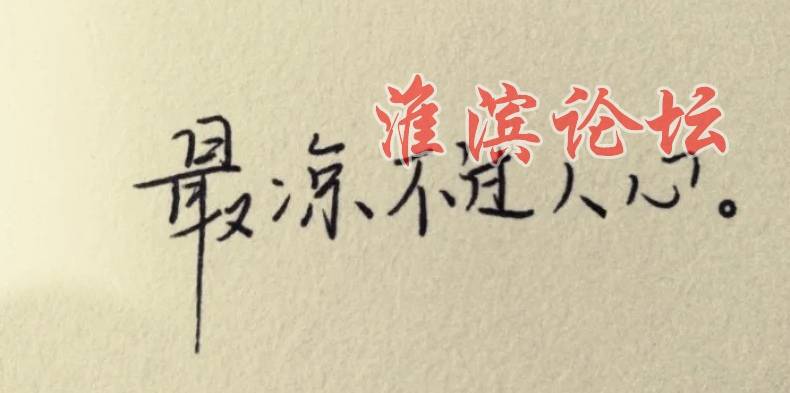 淮滨论坛
最凉不过人心。